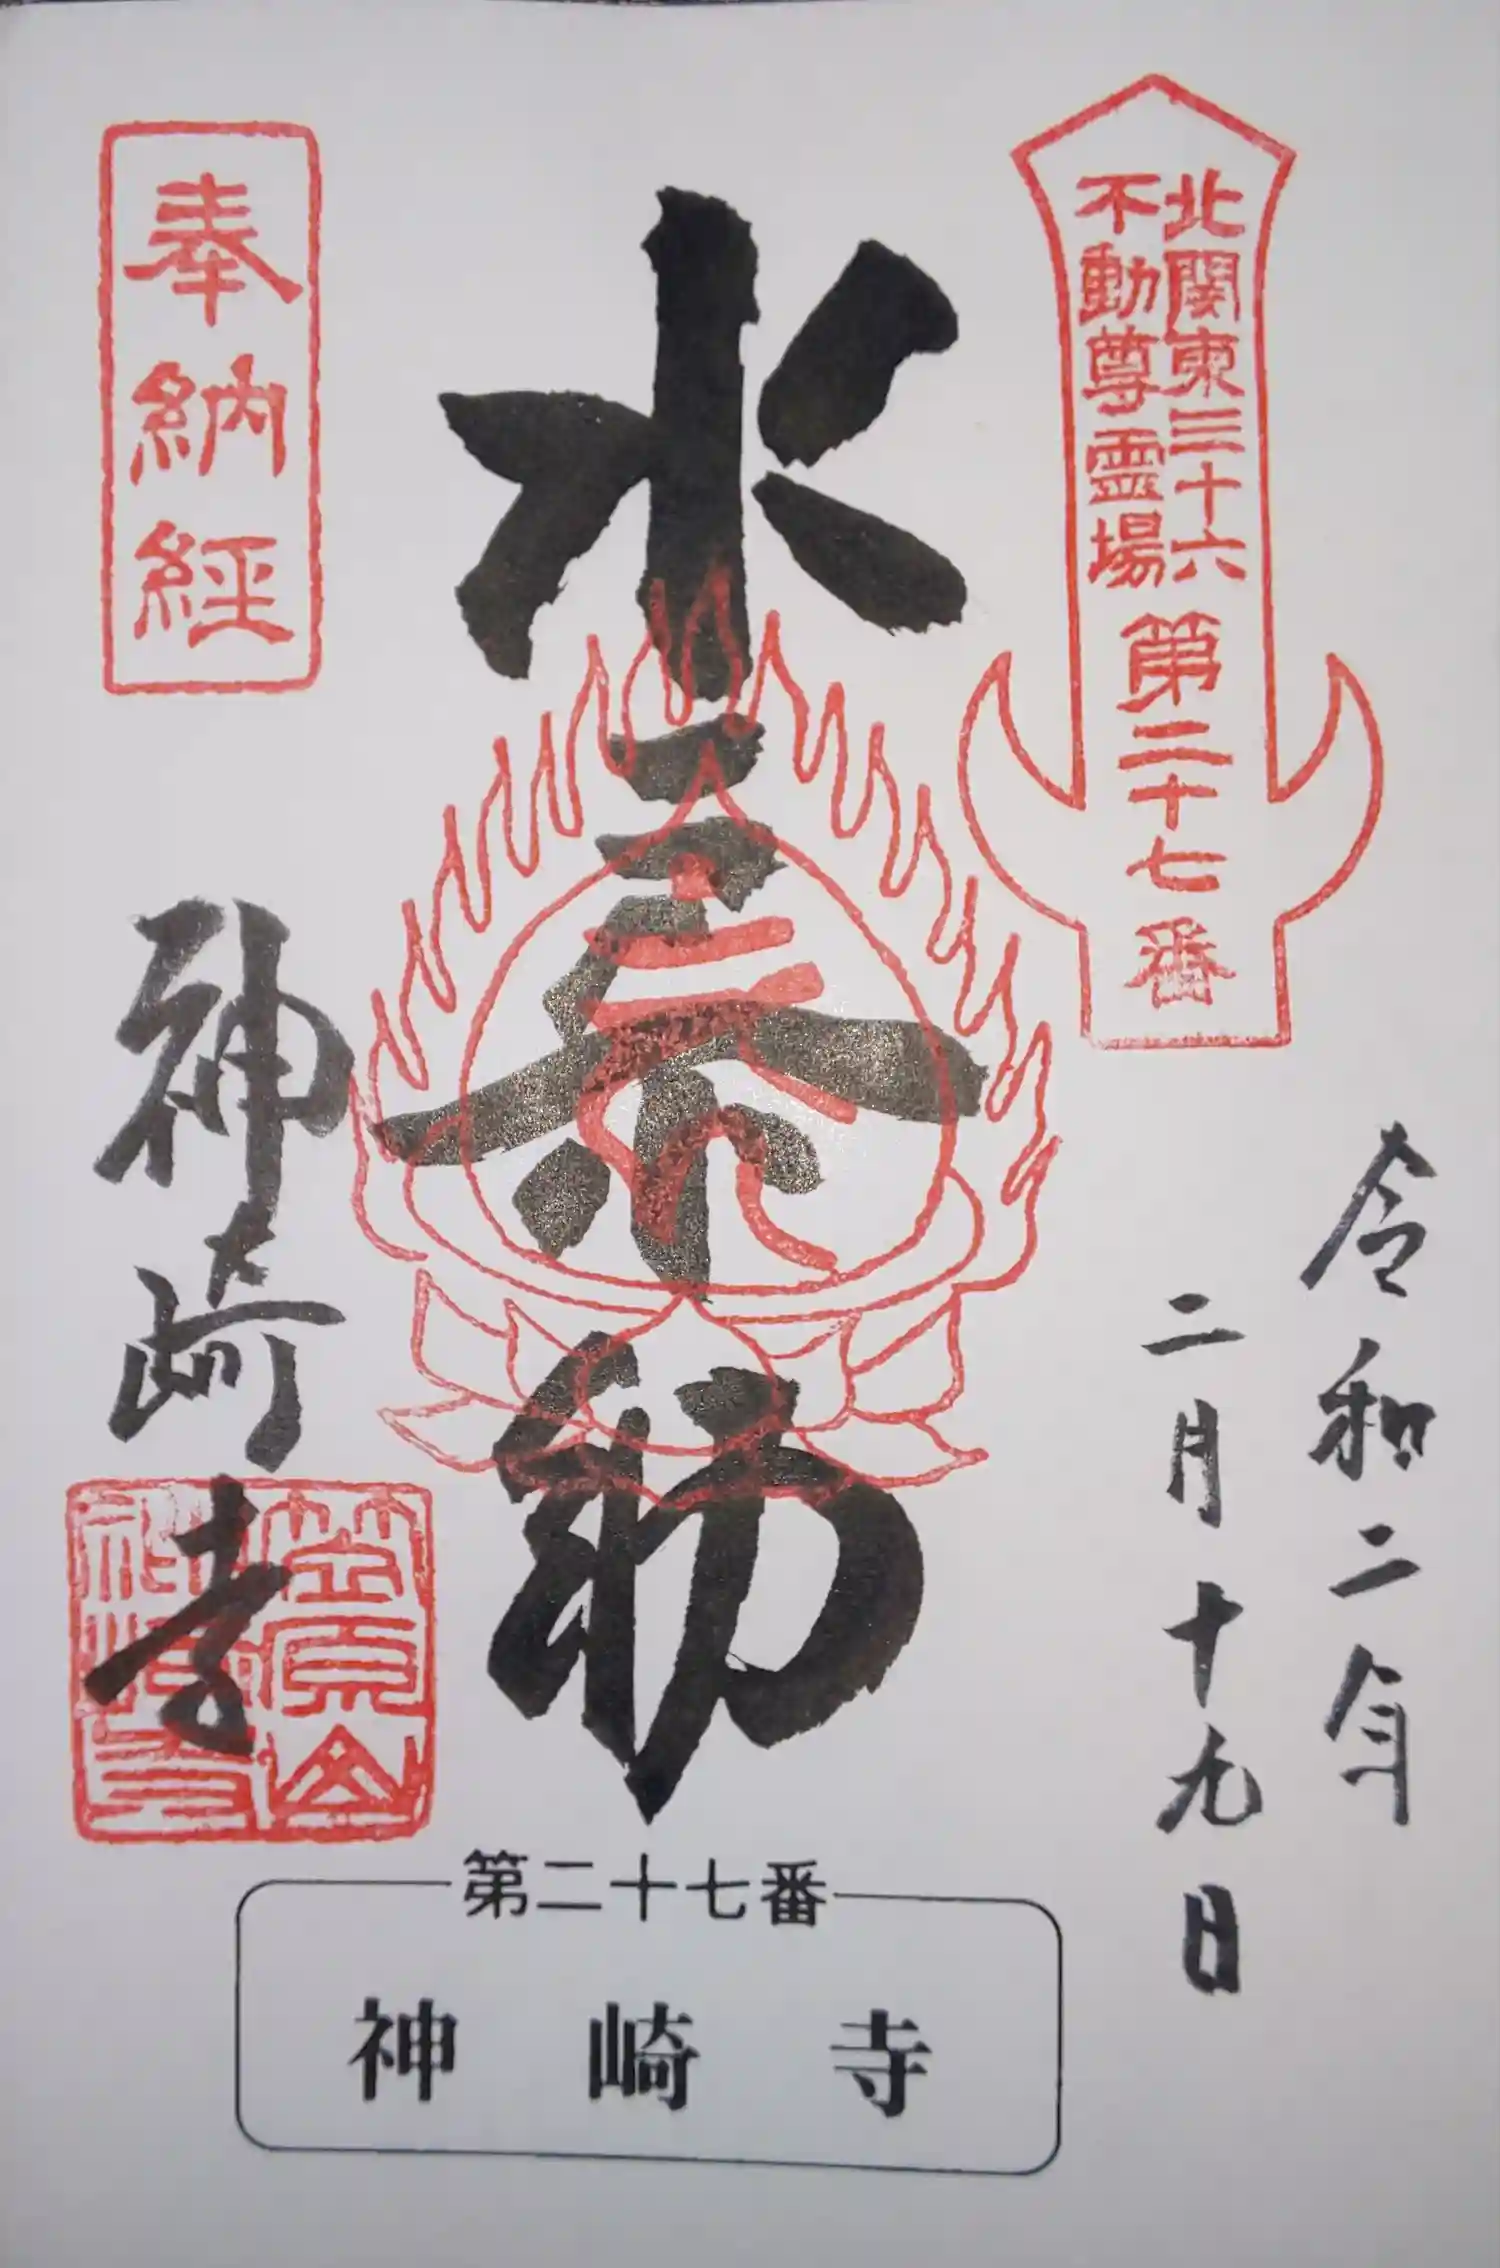 北関東三十六
不動尊霊場
第二十七番
令和二年
二月十九日
水
奉納経
神崎寺
笠原山
神崎寺
第二十七番
神崎寺